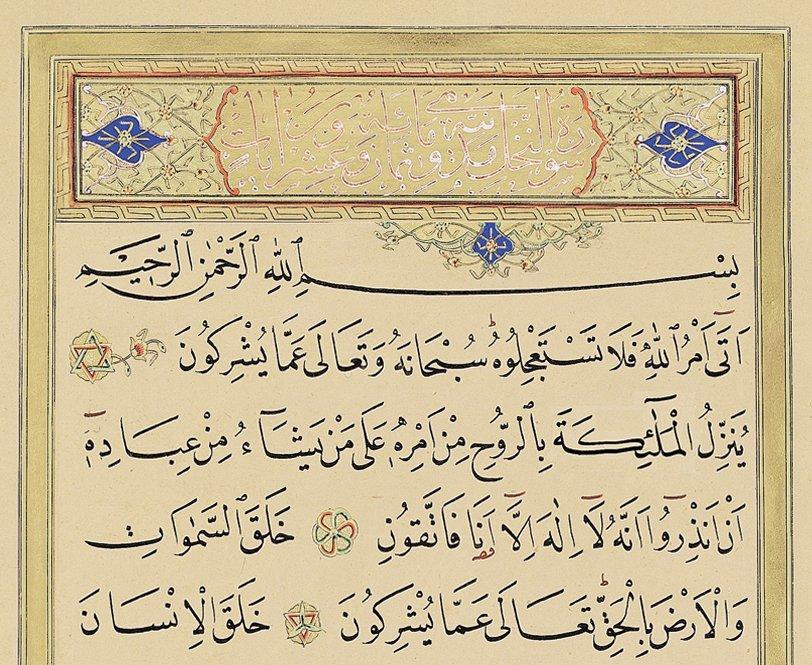 سورة النحل مائة وثمان وعشرون ايات
بِسْمِ ٱللّٰهِ ٱلرَّحْمٰنِ ٱلرَّحِيمِ
اَتٰٓى اَمْرُ ٱللّٰهِ فَلَا تَسْتَعْجِلُوهُ سُبْحَانَهُ وَتَعَالَى عَمَّا يُشْرِكُونَ
يُنَزِّلُ الْمَلٰٓئِكَةَ بِالرُّوحِ مِنْ اَمْرِهِ عَلَى مَنْ يَشَٓاءُ مِنْ عِبَادِهِٓ
اَنْ اَنْذِرُٓوا اَنَّهُ لَٓا اِلٰهَ اِلَّٓا اَنَا فَاتَّقُونِ خَلَقَ السَّمٰوَاتِ
وَالْاَرْضَ بِالْحَقِّ تَعَالَى عَمَّا يُشْرِكُونَ خَلَقَ الْاِنْسَانَ